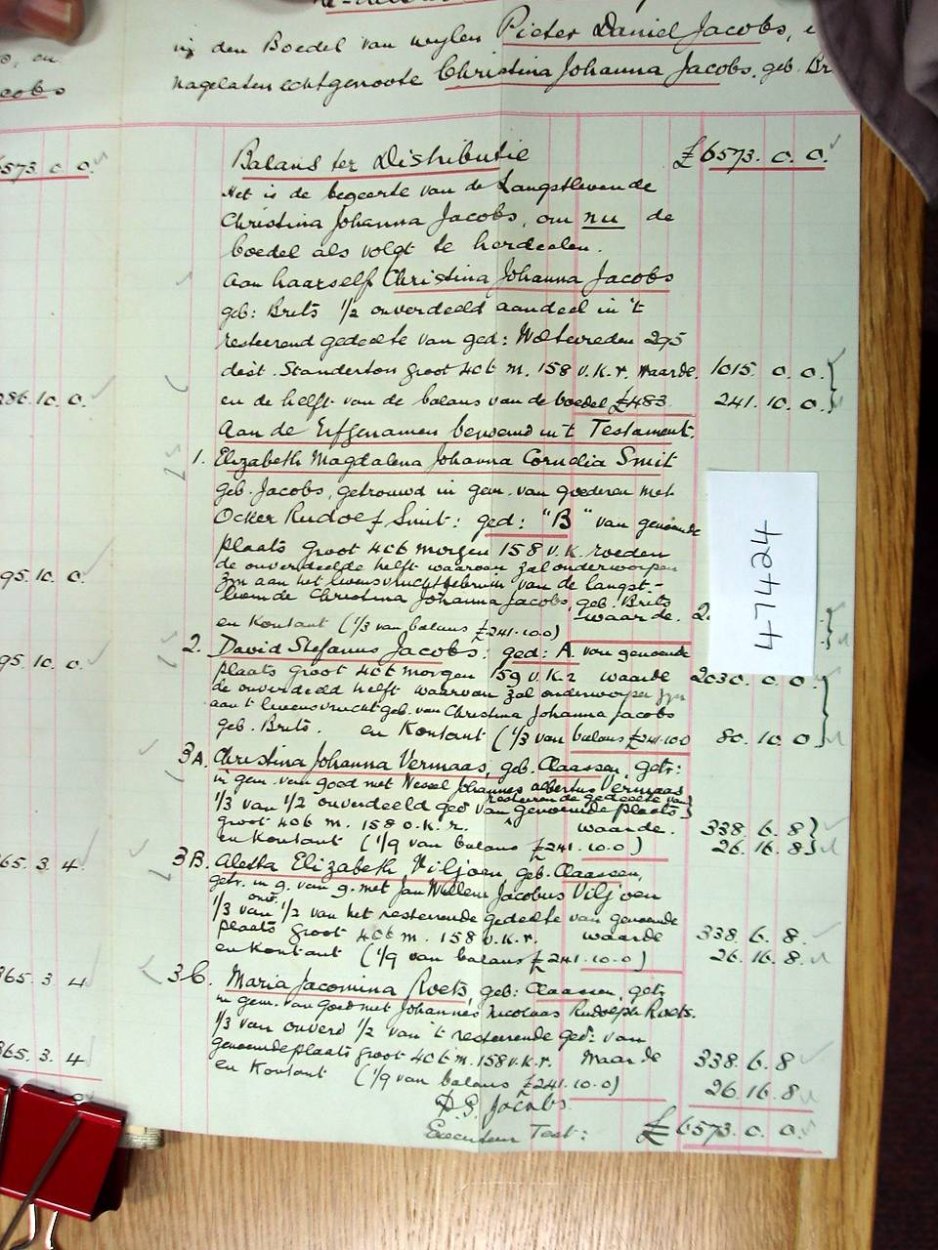 in den Boedel van wylen Pieter Daniel Jacobs, e
nagelaten echtgenoote Christina Johanna Jacobs, geb. Br
, en
acobs
6573. 0. 0.
Balans ter Distributie £6573. 0. 0.
Het is de begeerte van de Langstlevende
Christina Johanna Jacobs, om nu de
boedel als volgt te herdeelen.
Aan haarself Christina Johanna Jacobs
geb: Brits 1/2 onverdeeld aandeel in 't
resteerend gedeelte van ged: Weltevreden 295
dist. Standerton groot 406 m. 158 v.k.r. waarde 1015. 0. 0.
en de helft van de balans van de boedel £483 241. 10. 0.
286. 10. 0.
Aan de Erfgenamen benoemd in 't Testament.
1. Elizabeth Magdalena Johanna Cornelia Smit
geb. Jacobs, getrouwd in gem. van goederen met
Ocker Rudolf Smit: ged: "B" van genoemde
plaats groot 406 morgen 158 v.k. roeden
de onverdeelde helft waarvan zal onderworpen
zyn aan het levensvruchtgebruik van de langst-
levende Christina Johanna Jacobs, geb. Brits
waarde. 2.
en Kontant (1/3 van balans £241.10.0)
95. 10. 0.
47424
2. David Stefanus Jacobs: ged: A van genoemde
plaats groot 406 morgen 159 v.k.r waarde 2030. 0. 0.
de onverdeeld helft waarvan zal onderworpen zyn
aan 't levensvruchtgeb. van Christina Johanna Jacobs
geb. Brits. en Kontant (1/3 van balans £241.10.0 80. 10. 0.
95. 10. 0.
3A. Christina Johanna Vermaas, geb. Claassen, getr:
in gem. van goed met Wessel Johannes Albertus Vermaas
resteerende gedeelte van
1/3 van 1/2 onverdeeld ged van genoemde plaats
groot 406 m. 158 v.k.r. waarde. 338. 6. 8
en Kontant (1/9 van balans £241.10.0) 26. 16. 8
365. 3. 4
3B. Aletta Elizabeth Viljoen, geb. Claassen,
getr. in g. van g. met Jan Willem Jacobus Viljoen
onv.
1/3 van 1/2 van het resteerende gedeelte van genoemde
plaats groot 406 m. 158 v.k.r. waarde 338. 6. 8.
en Kontant (1/9 van balans £241.10.0) 26. 16. 8.
365. 3. 4
3C. Maria Jacomina Roets, geb: Claassen, getr,
in gem. van goed met Johannes Nicolaas Rudolph Roets.
1/3 van onverd 1/2 van 't resteerende ged: van
genoemde plaats groot 406 m. 158 v.k.r. Waarde 338. 6. 8
en Kontant (1/9 van balans £241.10.0) 26. 16. 8
365. 3. 4
Jacobs.
Executeur Test: £6573. 0. 0.